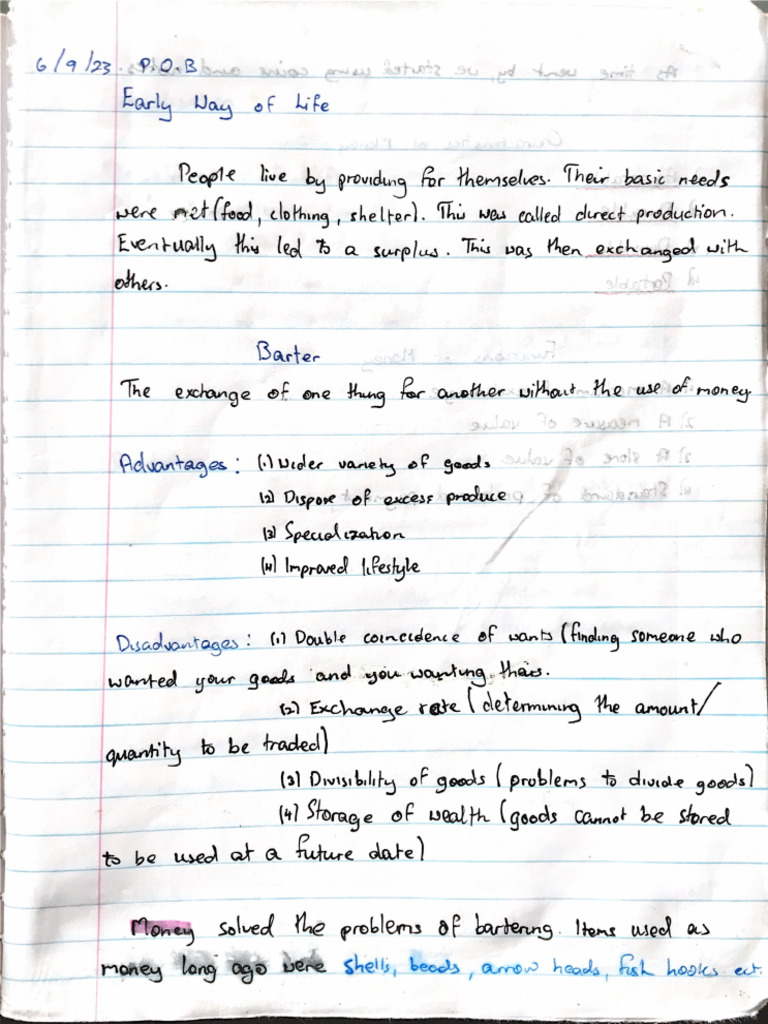 6/9/23. P.O.B
Early Way of Life
People live by providing for themselves. Their basic needs
were met (food, clothing, shelter). This was called direct production.
Eventually this led to a surplus. This was then exchanged with
others.
Barter
The exchange of one thing for another without the use of money.
Advantages: (1) Wider variety of goods
(2) Dispose of excess produce
(3) Specialization
(4) Improved lifestyle
Disadvantages: (1) Double coincidence of wants (finding someone who
wanted your goods and you wanting theirs.
(2) Exchange rate (determining the amount/
quantity to be traded)
(3) Divisibility of goods (problems to divide goods)
(4) Storage of wealth (goods cannot be stored
to be used at a future date)
Money solved the problems of bartering. Items used as
money long ago were shells, beads, arrow heads, fish hooks ect.